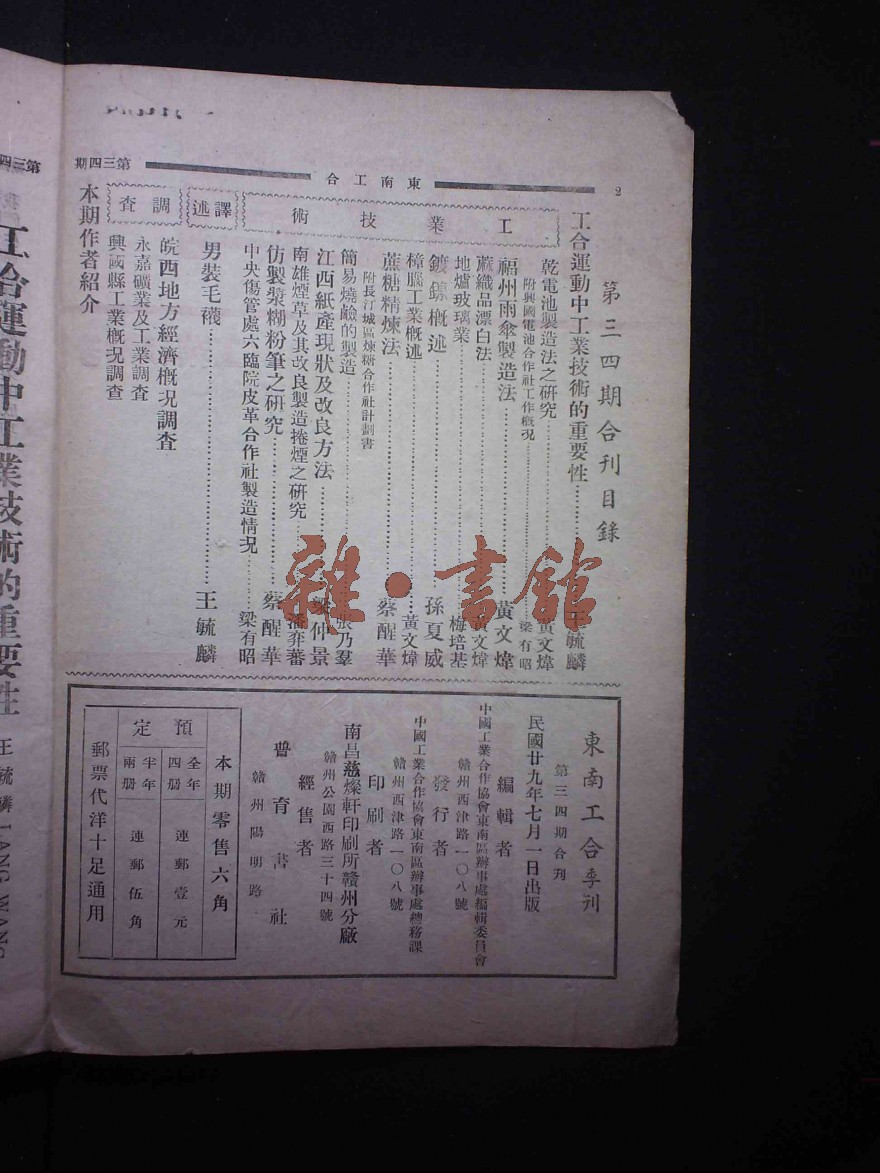 2
東南工合
第三四期
第三四期合刊目錄
工合運動中工業技術的重要性……王毓麟
工業技術
乾電池製造法之研究……黃文煒
附興國電池合作社工作概況……梁有昭
福州雨傘製造法……黃文煒
蔴織品漂白法……黃文煒
地爐玻璃業……梅培基
鍍鎳概述……孫夏威
樟腦工業概述……黃文煒
蔗糖精煉法……蔡醒華
附長汀城區煉糖合作社計劃書
簡易燒鹼的製造……張乃羣
江西紙產現狀及改良方法……梁仲景
南雄煙草及其改良製造捲煙之研究……潘弃蕃
仿製漿糊粉筆之研究……蔡醒華
中央傷管處六臨院皮革合作社製造情況……梁有昭
譯述
男裝毛襪……王毓麟
調查
皖西地方經濟概況調查
永嘉礦業及工業調查
興國縣工業概況調查
本期作者紹介
東南工合季刊
第三四期合刊
民國廿九年七月一日出版
編輯者
中國工業合作協會東南區辦事處編輯委員會
贛州西津路一〇八號
發行者
中國工業合作協會東南區辦事處總務課
贛州西津路一〇八號
印刷者
南昌慈燦軒印刷所贛州分廠
贛州公園西路三十四號
經售者
普育書社
贛州陽明路
本期零售六角
預定
全年四册 連郵壹元
半年兩册 連郵伍角
郵票代洋十足通用
第三四
工合運動中工業技術的重要性
王毓麟
雜·書館